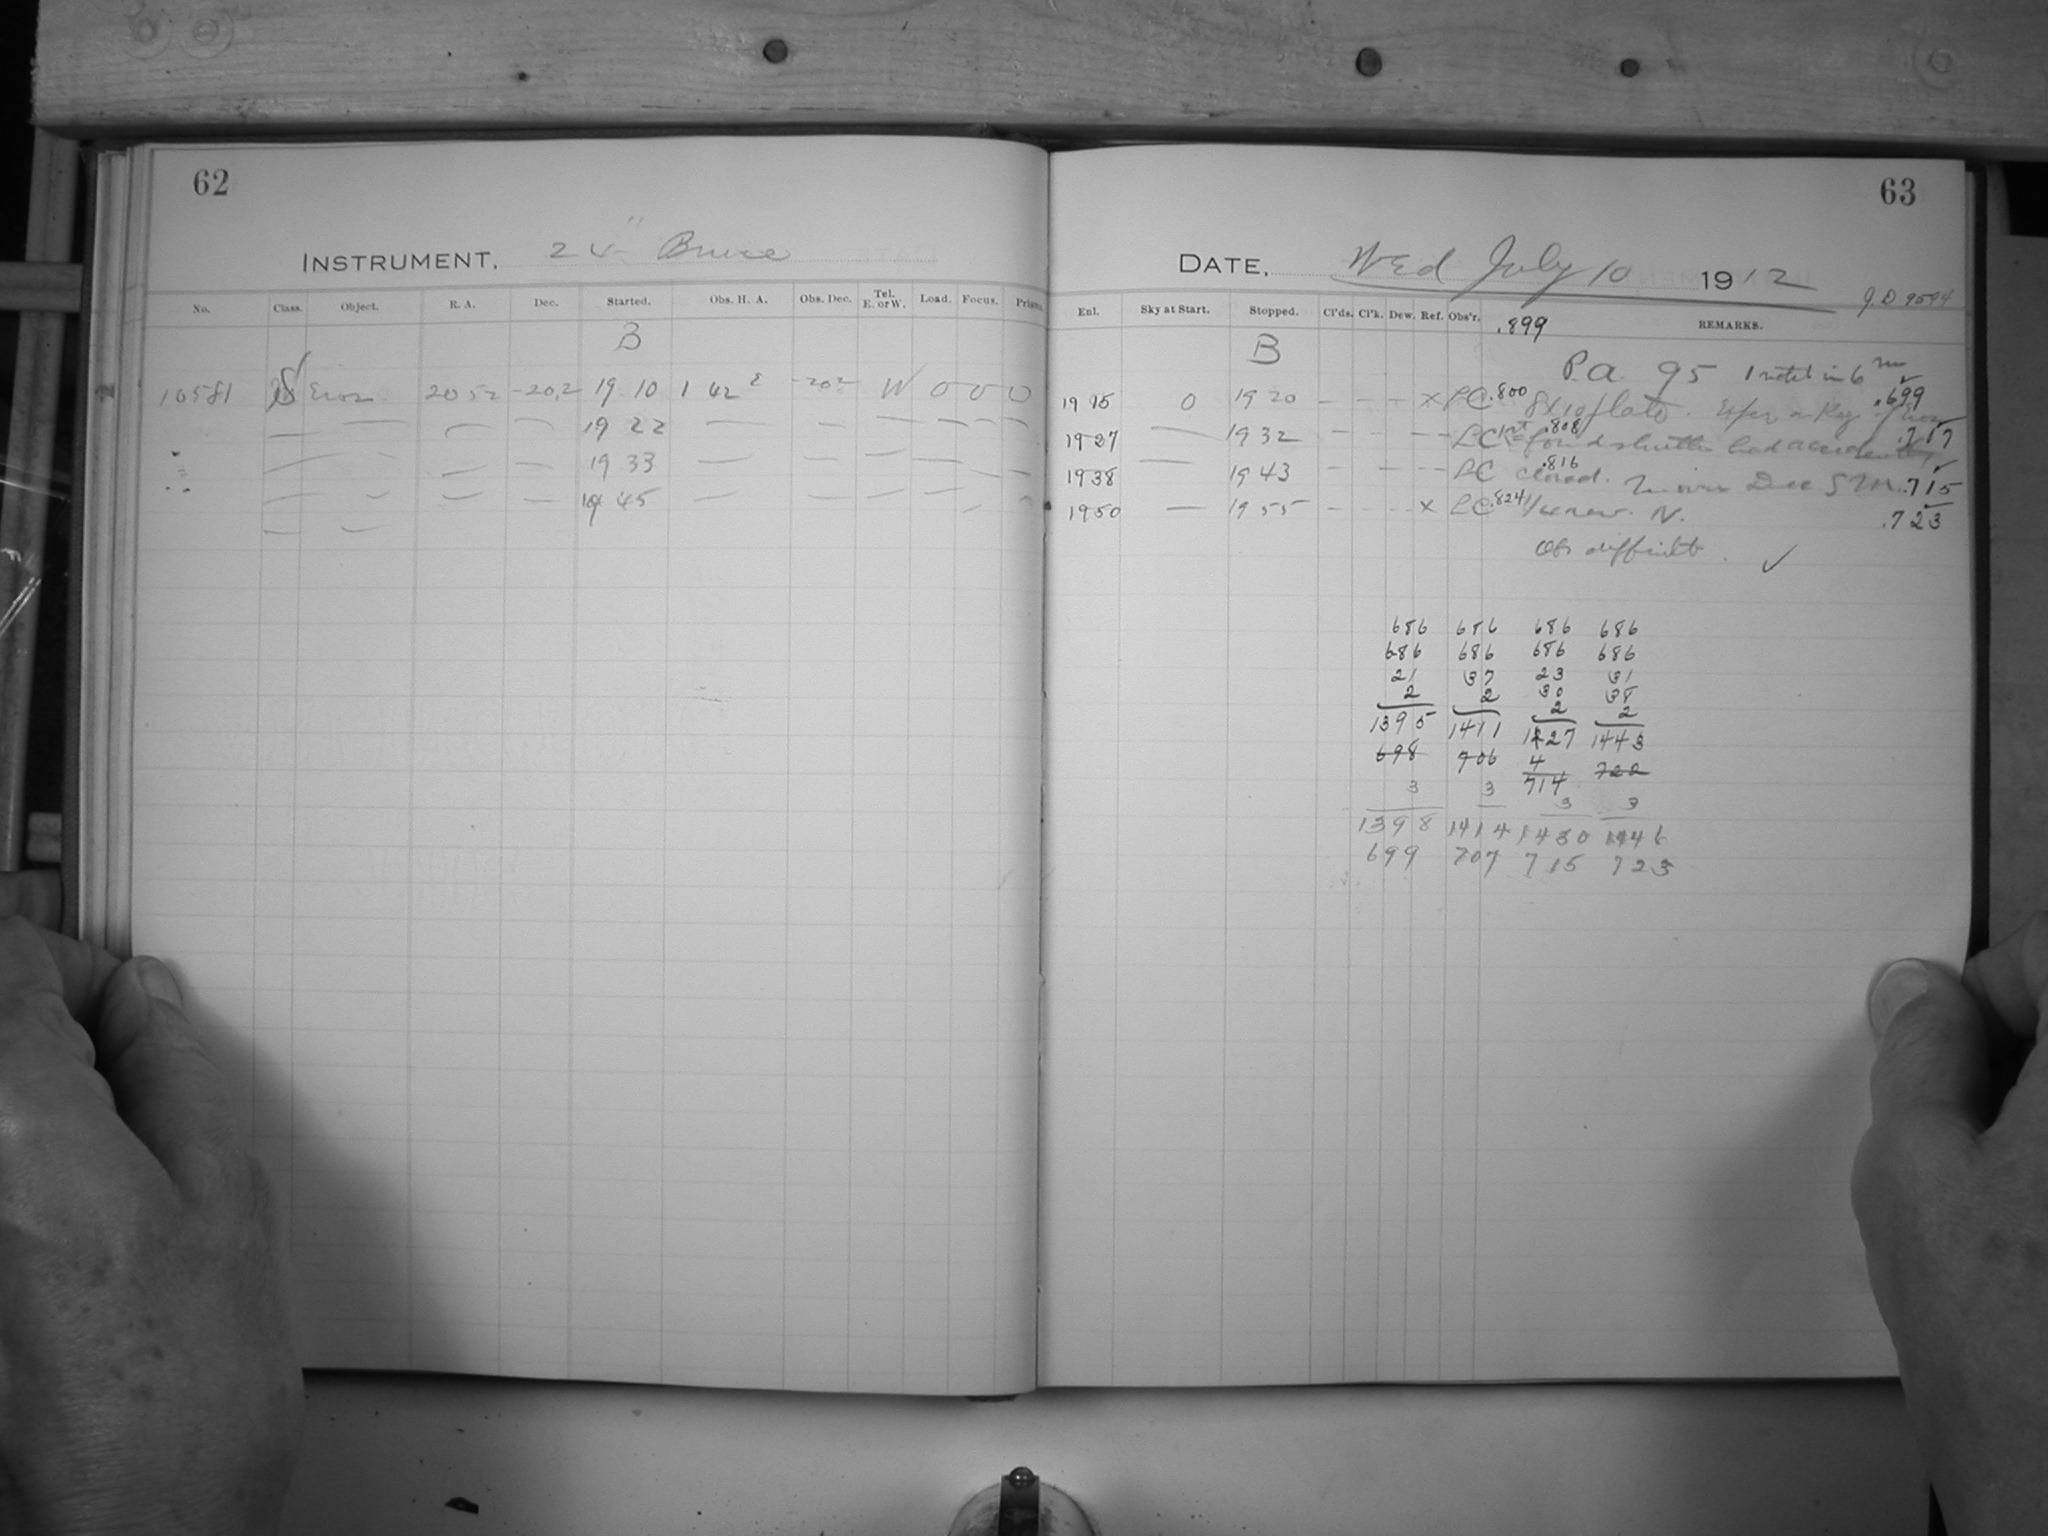 62
INSTRUMENT, 24" Bruce
No. Class. Object. R. A. Dec. Started. Obs. H. A. Obs. Dec. Tel. E. or W. Load. Focus. Prism
B
Eros 20 52 -20.2 19 10 1 42 E -20.2 W 0 0 0
19 22
19 33
19 45
63
DATE, Wed July 10 1912
J.D 9594
Enl. Sky at Start. Stopped. Cl'ds. Cl'k. Dew. Ref. Obs'r. .899 REMARKS.
B P.a. 95 1 in 6 m
19 15 0 19 20 - - - x LC .800 8x10 plate. .699
19 27 — 19 32 - - - - LC .808 found shutter had accidentally
19 38 — 19 43 - - - - LC .816 closed. .715
19 50 — 19 55 - - - x LC .824 N. .723
Obs difficult. ✓
686 686 686 686
686 686 686 686
21 37 23 31
2 2 30 38
2 2
1395 1411 1427 1443
698 706 4 722
714
3 3 3 3
1398 1414 1430 1446
699 707 715 723